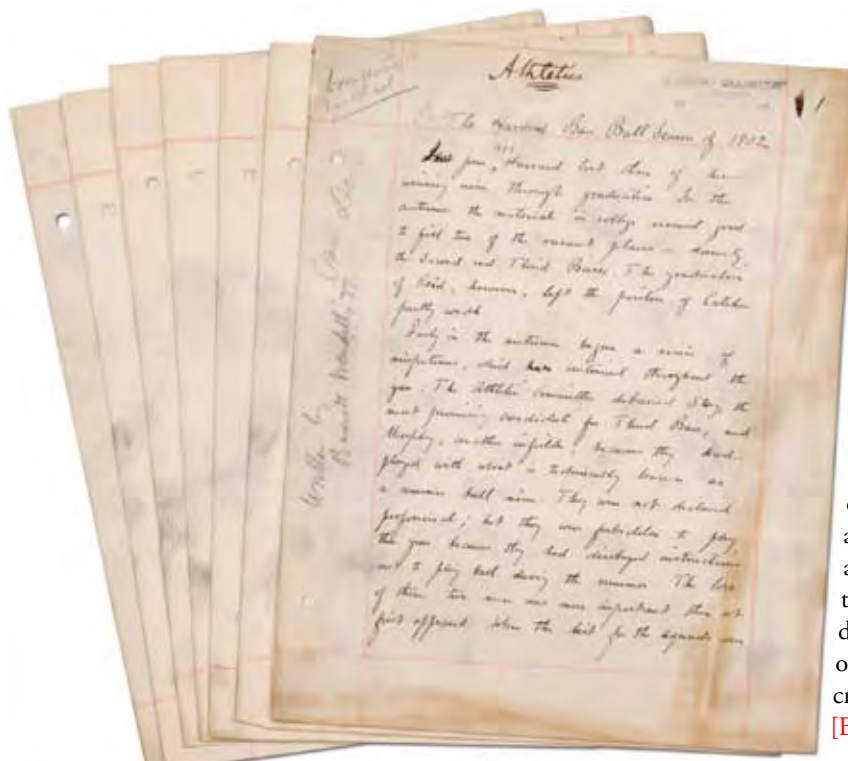 Athletics
1
The Harvard Base Ball Season of 1902
Last year, Harvard lost three of her
winning nine through graduation. In the
autumn the material in college seemed good
to fill two of the vacant places – namely,
the Second and Third Bases. The graduation
of Reid, however, left the position of Catcher
pretty weak
Early in the autumn began a series of
misfortunes, which continued throughout the
year. The Athletic Committee debarred Story, the
most promising candidate for Third Base, and
Murphy, another infielder, because they had
played with what is technically known as
a summer ball nine. They were not declared
professional; but they were forbidden to play
this year because they had disobeyed instructions
not to play ball during the summer. The loss
of these two men was more important than at
first appeared. When the for the squads was
Written by
Barrett Wendell, 77
[